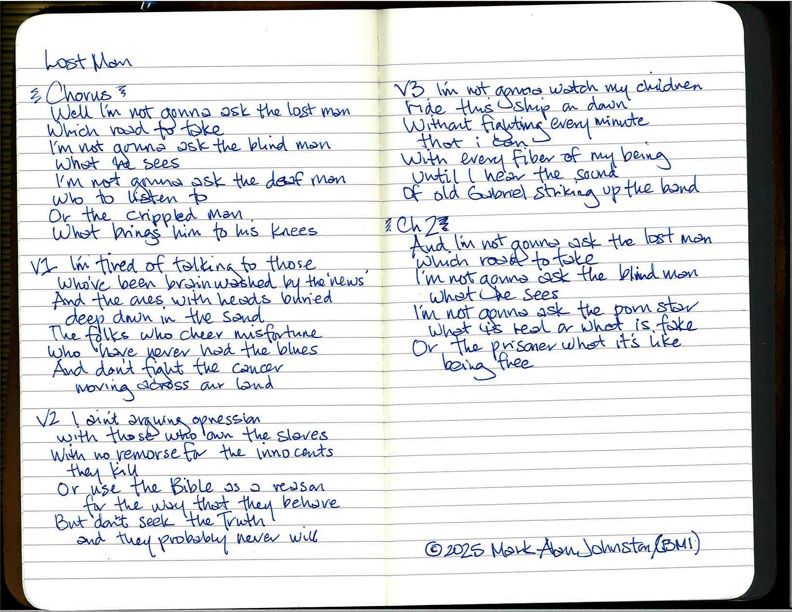 Lost Man
Chorus
Well I'm not gonna ask the lost man
Which road to take
I'm not gonna ask the blind man
What he sees
I'm not gonna ask the deaf man
who to listen to
Or the crippled man
What brings him to his knees
V1 I'm tired of talking to those
Who've been brainwashed by the 'news'
And the ones with heads buried
deep down in the sand
The folks who cheer misfortune
Who have never had the blues
And don't fight the cancer
moving across our land
V2 I ain't arguing opression
with those who own the slaves
With no remorse for the innocents
they kill
Or use the Bible as a reason
for the way that they behave
But don't seek the Truth
and they probably never will
V3 I'm not gonna watch my children
ride this ship on down
Without fighting every minute
that i can
With every fiber of my being
until I hear the sound
Of old Gabriel striking up the band
Ch 2
And I'm not gonna ask the lost man
which road to take
I'm not gonna ask the blind man
what he sees
I'm not gonna ask the porn star
what is real or what is fake
Or the prisoner what it's like
being free
©2025 Mark Alan Johnston (BMI)